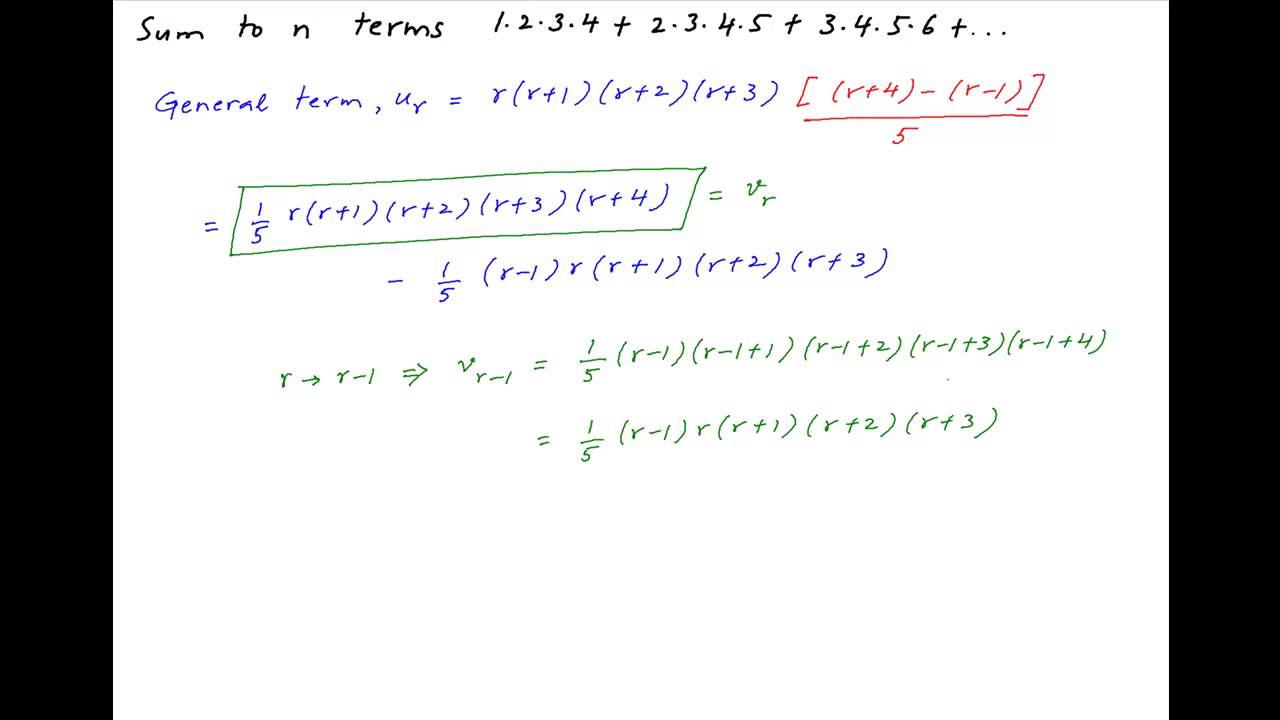 Sum to n terms 1.2.3.4 + 2.3.4.5 + 3.4.5.6 + ...
General term, u_r = r(r+1)(r+2)(r+3) [(r+4)-(r-1)]/5
= 1/5 r(r+1)(r+2)(r+3)(r+4) = v_r
- 1/5 (r-1)r(r+1)(r+2)(r+3)
r → r-1 ⇒ v_{r-1} = 1/5 (r-1)(r-1+1)(r-1+2)(r-1+3)(r-1+4)
= 1/5 (r-1)r(r+1)(r+2)(r+3)